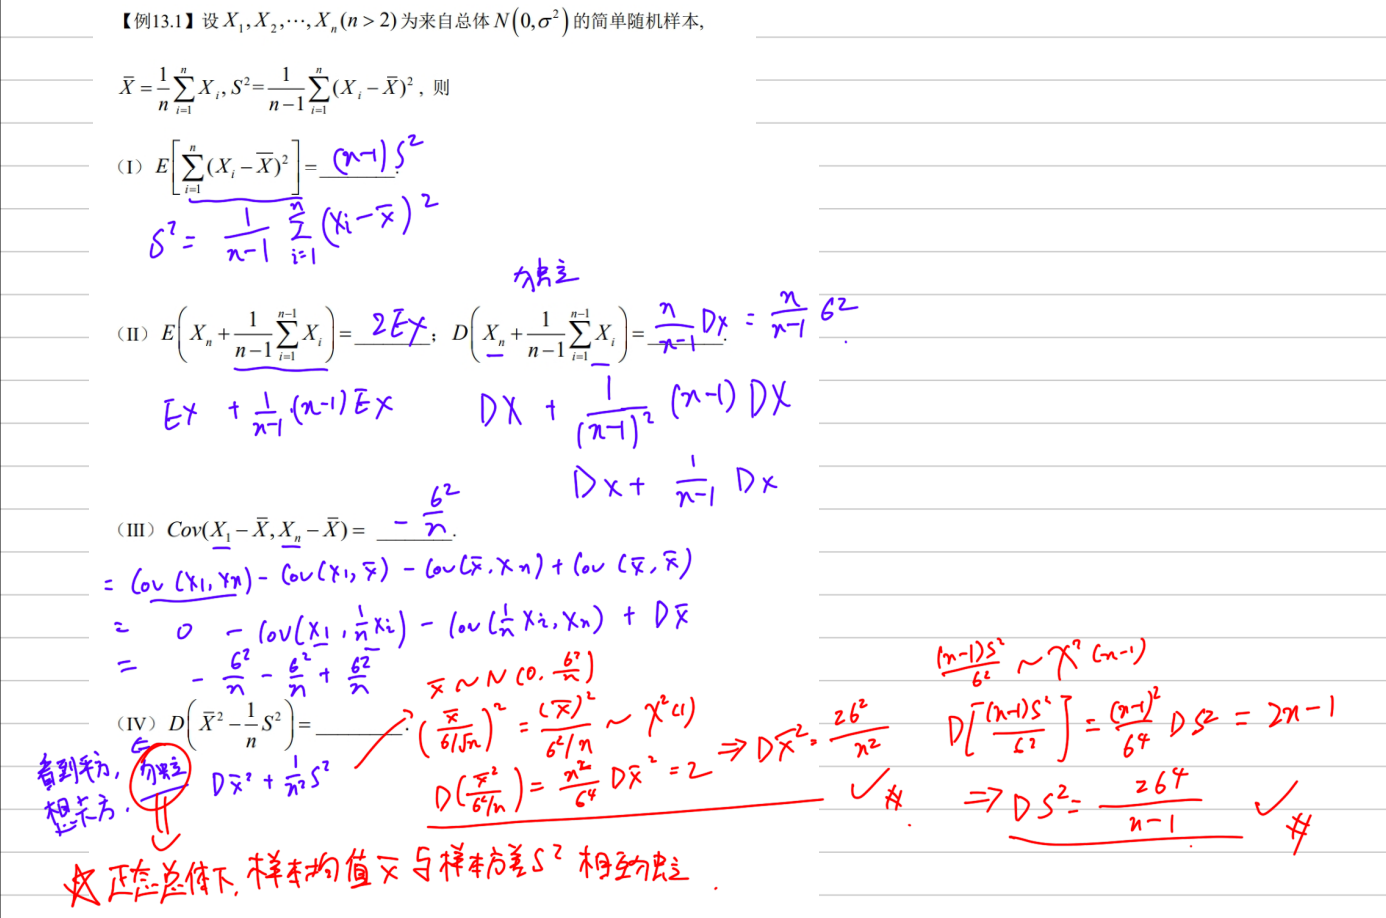 【例13.1】设 X₁, X₂, ⋯, Xₙ (n > 2) 为来自总体 N(0, σ²) 的简单随机样本,
X̄ = 1/n ∑_{i=1}^{n} X_i, S² = 1/(n−1) ∑_{i=1}^{n} (X_i − X̄)², 则
(I) E[∑_{i=1}^{n} (X_i − X̄)²] = (n-1)S².
S² = 1/(n-1) ∑_{i=1}^{n} (Xi - x̄)²
为独立
(II) E(Xₙ + 1/(n−1) ∑_{i=1}^{n−1} X_i) = 2EX; D(Xₙ + 1/(n−1) ∑_{i=1}^{n−1} X_i) = n/(n-1) DX = n/(n-1) σ².
EX + 1/(n-1)·(n-1)EX DX + 1/(n-1)² (n-1) DX
DX + 1/(n-1) DX
(III) Cov(X₁ − X̄, Xₙ − X̄) = - σ²/n.
= Cov(X1, Xn) - Cov(X1, x̄) - Cov(x̄, Xn) + Cov(x̄, x̄)
= 0 - Cov(X1, 1/n Xi) - Cov(1/n Xi, Xn) + DX̄
= - σ²/n - σ²/n + σ²/n
(IV) D(X̄² − 1/n S²) = ______.
看到平方,
想卡方.
为独立
DX̄² + 1/n² S²
x̄ ~ N(0, σ²/n)
(x̄/(σ/√n))² = (x̄)²/(σ²/n) ~ χ²(1)
D(x̄²/(σ²/n)) = n²/σ⁴ DX̄² = 2 ⇒ DX̄² = 2σ²/n² ✓ #.
(n-1)S²/σ² ~ χ²(n-1)
D[(n-1)S²/σ²] = (n-1)²/σ⁴ DS² = 2n-1
⇒ DS² = 2σ⁴/(n-1) ✓ #
☆ 正态总体下, 样本均值 x̄ 与样本方差 S² 相互独立.